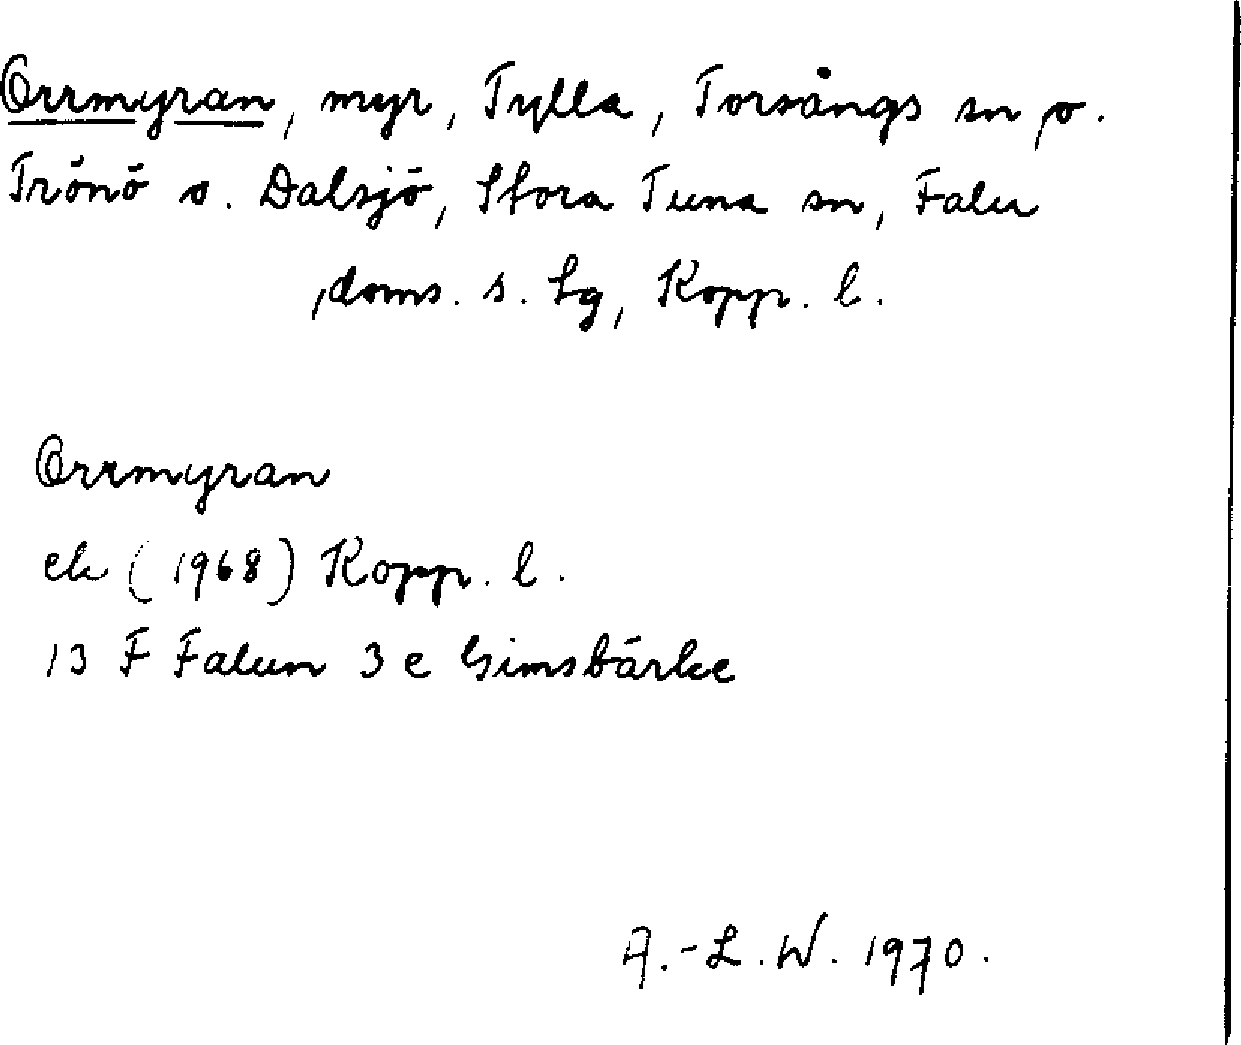 Orrmyran, myr, Tylla, Torsångs sn o.
Trönö o. Dalsjö, Stora Tuna sn, Falu
doms. s. Lg, Kopp. l.
Orrmyran
ek (1968) Kopp. l.
13 F Falun 3 e Gimsbärke
A.-L. W. 1970.